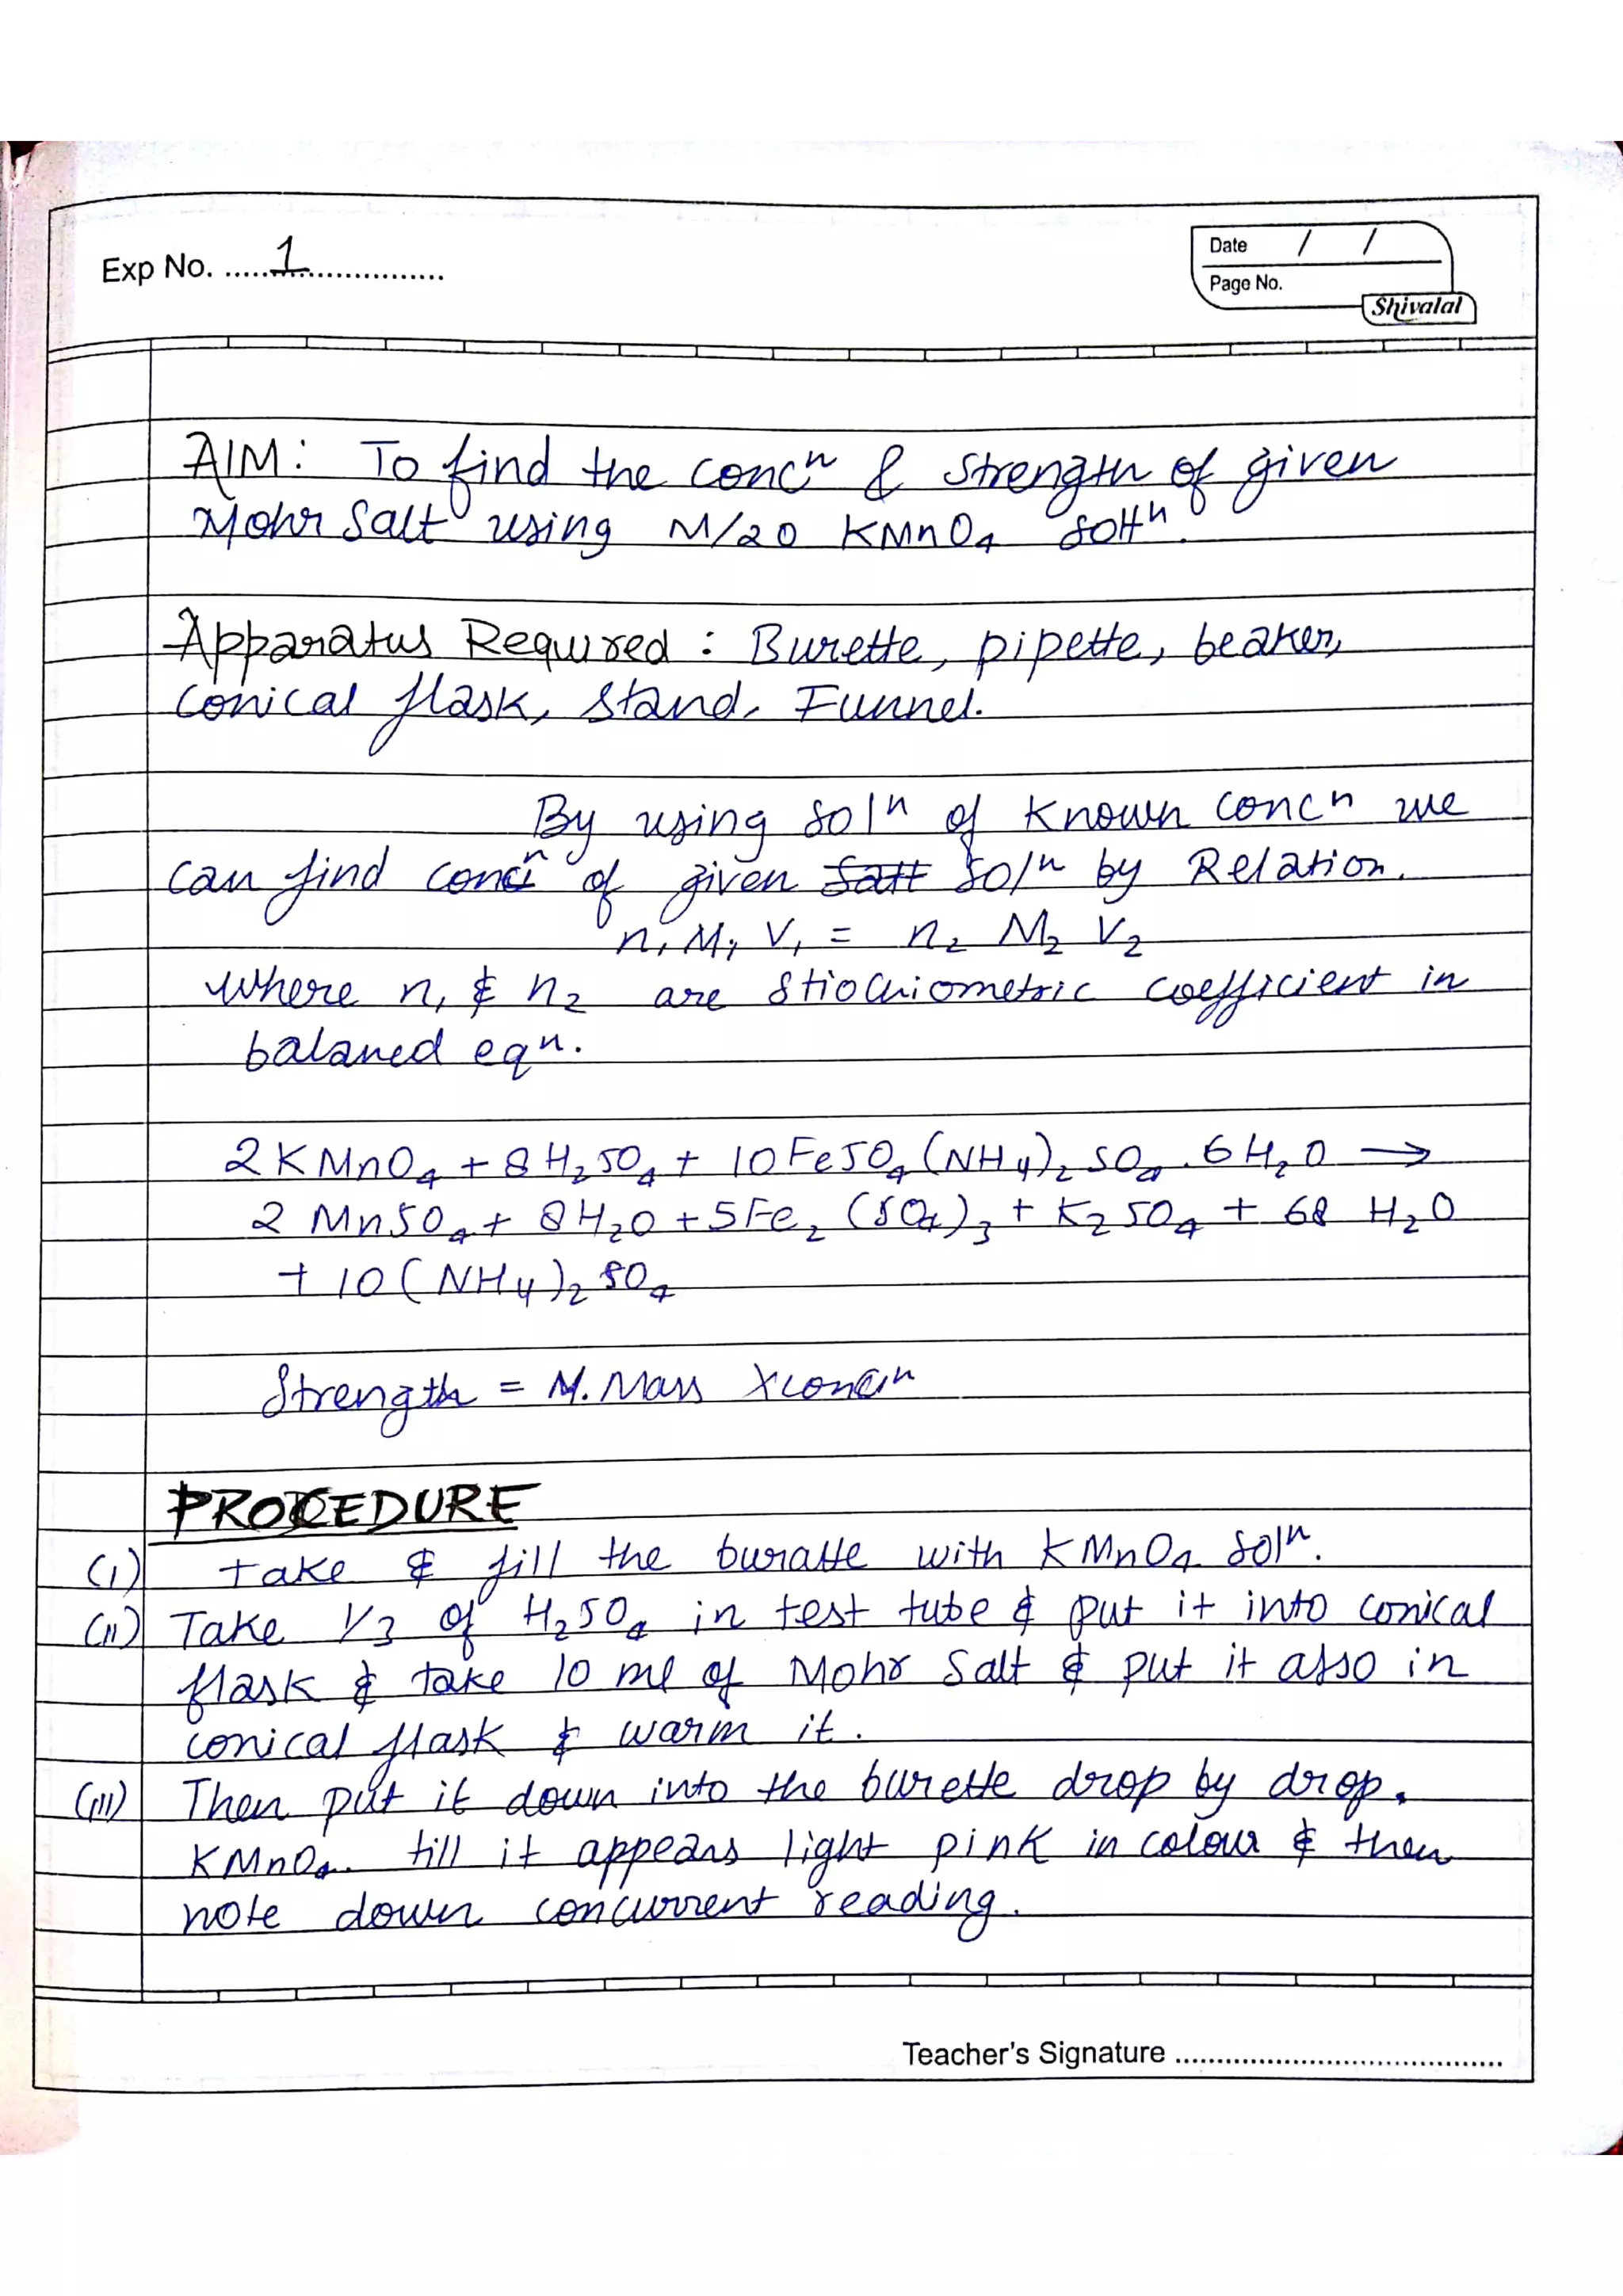 Exp No. ......1....................
Date / /
Page No.
Shivalal
AIM: To find the concn & strength of given
Mohr Salt using M/20 KMnO4 soltn.
Apparatus Required : Burette, pipette, beaker,
conical flask, stand, Funnel.
By using soln of known concn we
can find concn of given Salt soln by Relation.
n1 M1 V1 = n2 M2 V2
where n1 & n2 are stiochiometric coefficient in
balanced eqn.
2KMnO4 + 8H2SO4 + 10FeSO4(NH4)2SO4.6H2O →
2 MnSO4 + 8H2O + 5Fe2(SO4)3 + K2SO4 + 68 H2O
+ 10(NH4)2SO4
Strength = M. Mass X concn
PROCEDURE
(i) take & fill the buratte with KMnO4 soln.
(ii) Take 1/3 of H2SO4 in test tube & put it into conical
flask & take 10 ml of Mohr Salt & put it also in
conical flask & warm it.
(iii) Then put it down into the burette drop by drop.
KMnO4. till it appears light pink in colour & then
note down concurrent reading.
Teacher's Signature ........................................